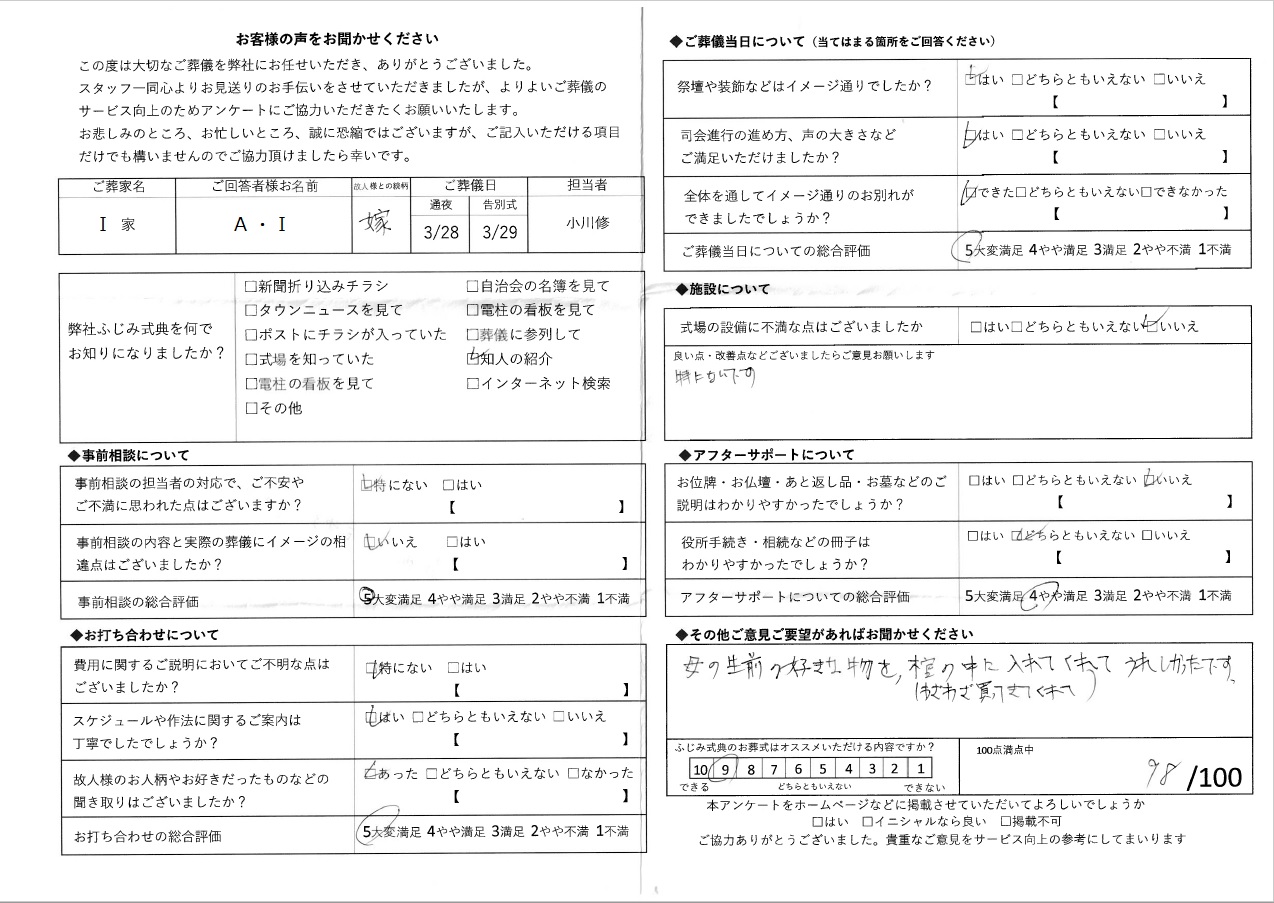 お客様の声をお聞かせください
この度は大切なご葬儀を弊社にお任せいただき、ありがとうございました。
スタッフ一同心よりお見送りのお手伝いをさせていただきましたが、よりよいご葬儀の
サービス向上のためアンケートにご協力いただきたくお願いいたします。
お悲しみのところ、お忙しいところ、誠に恐縮ではございますが、ご記入いただける項目
だけでも構いませんのでご協力頂けましたら幸いです。
ご葬家名 ご回答者様お名前 故人様との続柄 ご葬儀日 担当者
通夜 告別式
I 家 A・I 嫁 3/28 3/29 小川修
弊社ふじみ式典を何で
お知りになりましたか？
□新聞折り込みチラシ □自治会の名簿を見て
□タウンニュースを見て □電柱の看板を見て
□ポストにチラシが入っていた □葬儀に参列して
□式場を知っていた □知人の紹介
□電柱の看板を見て □インターネット検索
□その他
◆事前相談について
事前相談の担当者の対応で、ご不安や
ご不満に思われた点はございますか？
□特にない □はい
【 】
事前相談の内容と実際の葬儀にイメージの相
違点はございましたか？
□いいえ □はい
【 】
事前相談の総合評価 5大変満足 4やや満足 3満足 2やや不満 1不満
◆お打ち合わせについて
費用に関するご説明においてご不明な点は
ございましたか？
□特にない □はい
【 】
スケジュールや作法に関するご案内は
丁寧でしたでしょうか？
□はい □どちらともいえない □いいえ
【 】
故人様のお人柄やお好きだったものなどの
聞き取りはございましたか？
□あった □どちらともいえない □なかった
【 】
お打ち合わせの総合評価 5大変満足 4やや満足 3満足 2やや不満 1不満
◆ご葬儀当日について（当てはまる箇所をご回答ください）
祭壇や装飾などはイメージ通りでしたか？
□はい □どちらともいえない □いいえ
【 】
司会進行の進め方、声の大きさなど
ご満足いただけましたか？
□はい □どちらともいえない □いいえ
【 】
全体を通してイメージ通りのお別れが
できましたでしょうか？
□できた□どちらともいえない□できなかった
【 】
ご葬儀当日についての総合評価 5大変満足 4やや満足 3満足 2やや不満 1不満
◆施設について
式場の設備に不満な点はございましたか □はい□どちらともいえない□いいえ
良い点・改善点などございましたらご意見お願いします
特にないです
◆アフターサポートについて
お位牌・お仏壇・あと返し品・お墓などのご
説明はわかりやすかったでしょうか？
□はい □どちらともいえない □いいえ
【 】
役所手続き・相続などの冊子は
わかりやすかったでしょうか？
□はい □どちらともいえない □いいえ
【 】
アフターサポートについての総合評価 5大変満足 4やや満足 3満足 2やや不満 1不満
◆その他ご意見ご要望があればお聞かせください
母の生前の好きな物を、棺の中に入れてくれてうれしかったです。
(わざわざ買ってきてくれて)
ふじみ式典のお葬式はオススメいただける内容ですか？
10 9 8 7 6 5 4 3 2 1
できる どちらともいえない できない
100点満点中
98 /100
本アンケートをホームページなどに掲載させていただいてよろしいでしょうか
□はい □イニシャルなら良い □掲載不可
ご協力ありがとうございました。貴重なご意見をサービス向上の参考にしてまいります